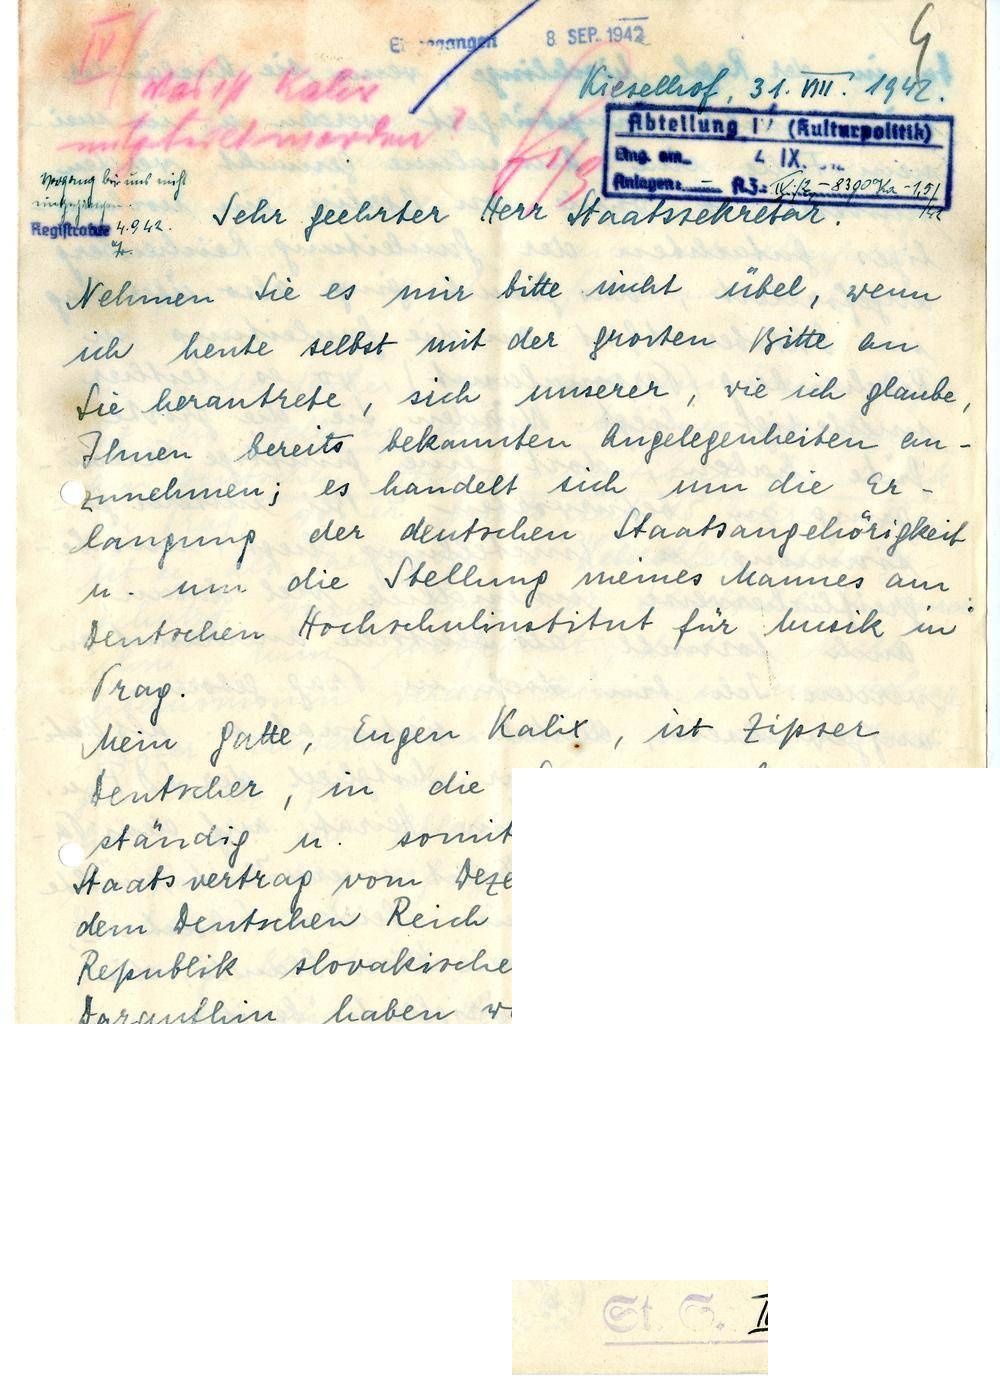 IV/
Eingegangen 8. SEP. 1942
Was ist Kalix
mitgeteilt worden?
Kieselhof, 31. VIII. 1942.
Abteilung IV (Kulturpolitik)
Eing. am 4. IX.
Anlagen: — A.Z.: IV/2 - 8390
Vorgang bei uns nicht
eingegangen.
Registratur 4.9.42.
Sehr geehrter Herr Staatssekretär.
Nehmen Sie es mir bitte nicht übel, wenn
ich heute selbst mit der grossen Bitte an
Sie herantrete, sich unserer, wie ich glaube,
Ihnen bereits bekannten Angelegenheiten an-
zunehmen; es handelt sich um die Er-
langung der deutschen Staatsangehörigkeit
u. um die Stellung meines Mannes am
Deutschen Hochschulinstitut für Musik in
Prag.
Mein Gatte, Eugen Kalix, ist Zipser
Deutscher, in die
ständig u. somit
Staatsvertrag vom Deze
dem Deutschen Reich
Republik slovakische
Daraufhin haben w
St. S.